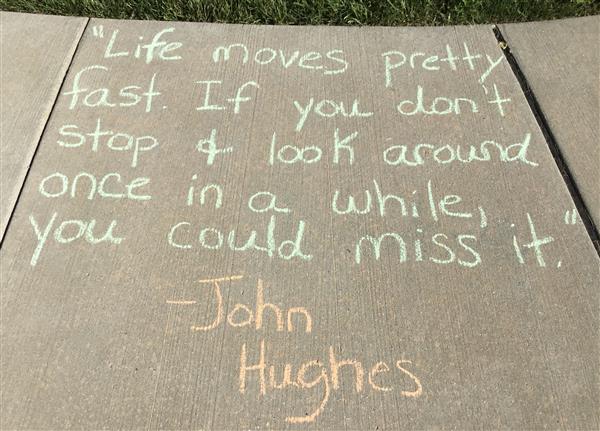 "Life moves pretty
fast. If you don't
stop & look around
once in a while,
you could miss it."
-John
Hughes